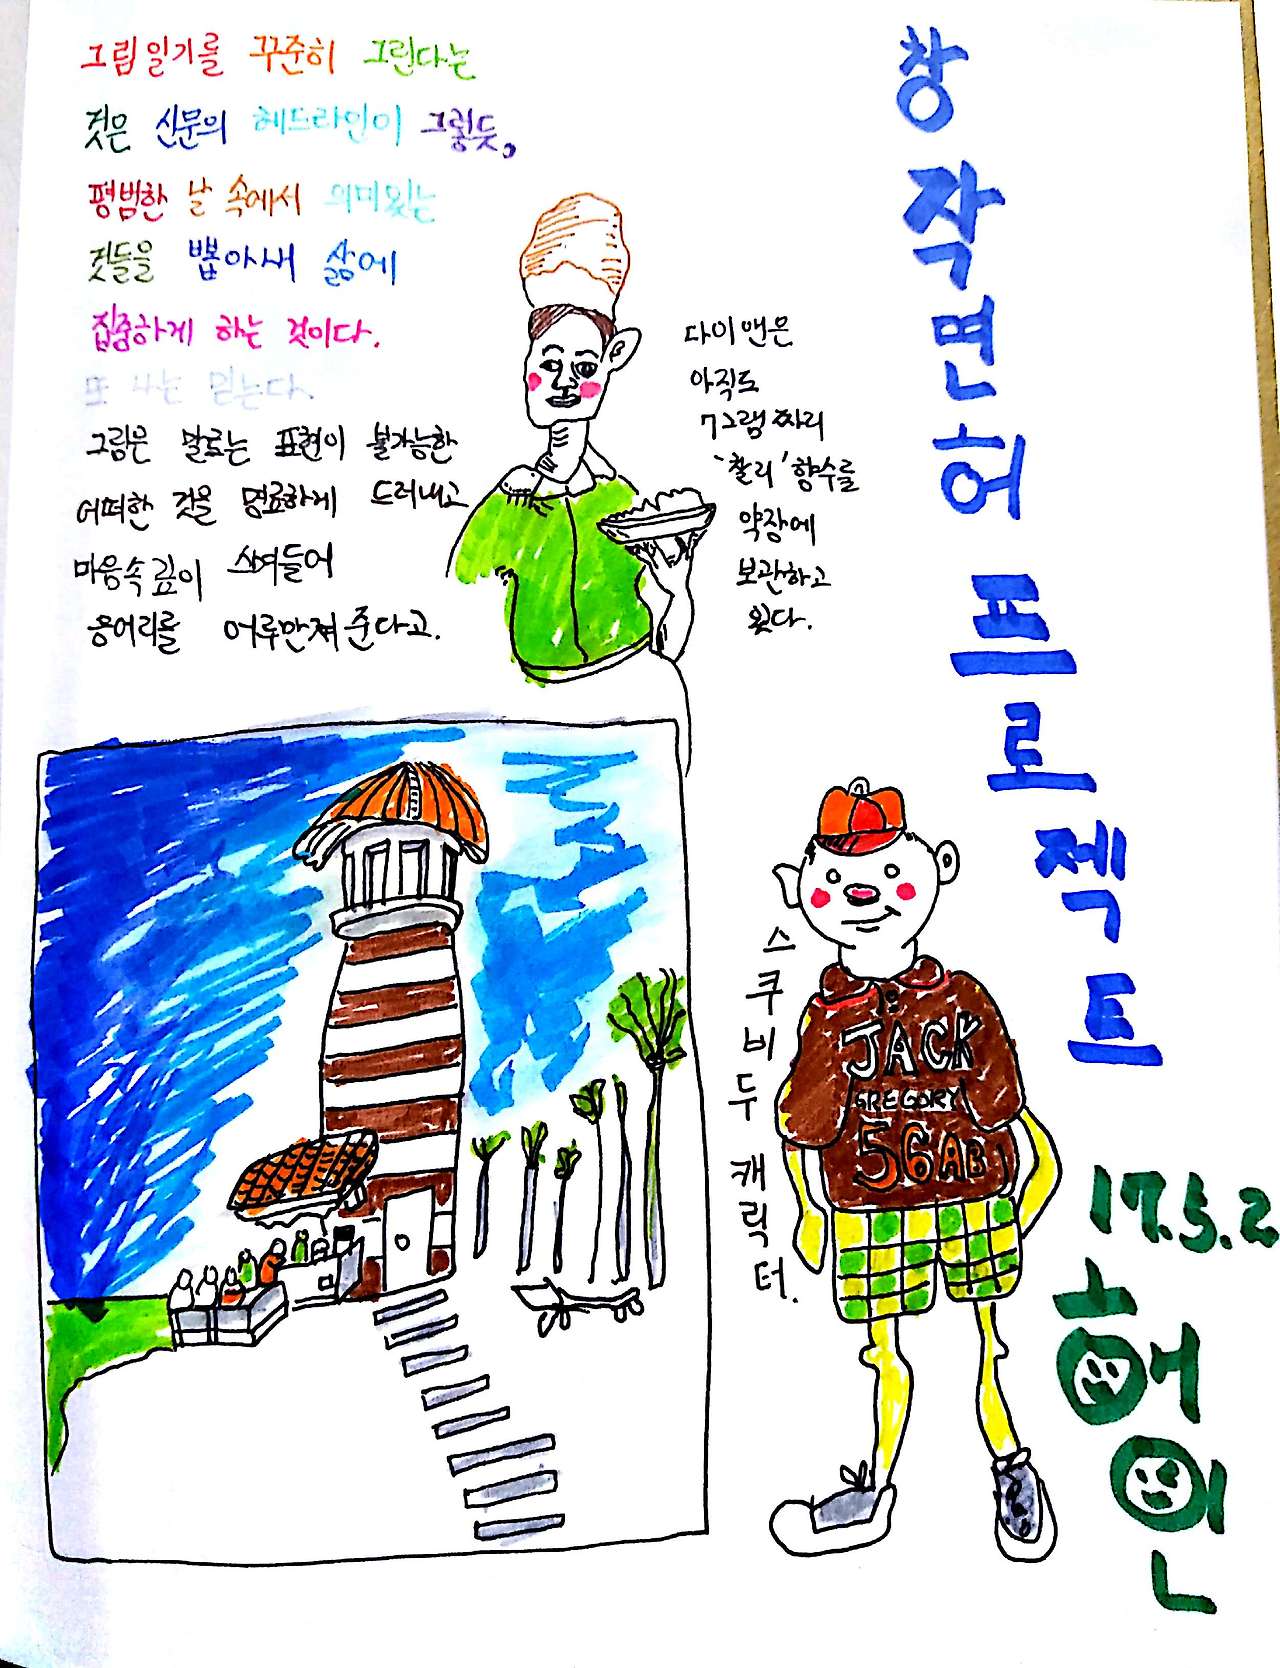 그림일기를 꾸준히 그린다는
것은 신문의 헤드라인이 그렇듯,
평범한 날 속에서 의미있는
것들을 뽑아내 삶에
집중하게 하는 것이다.
또 나는 믿는다.
그림은 말로는 표현이 불가능한
어떠한 것을 명료하게 드러내고
마음속 깊이 스며들어
응어리를 어루만져 준다고.
다이앤은
아직도
7그램 짜리
'찰리' 향수를
약장에
보관하고
있다.
창작면허 프로젝트
스쿠비두 캐릭터.
JACK
GREGORY
56AB
17.5.2
혜원